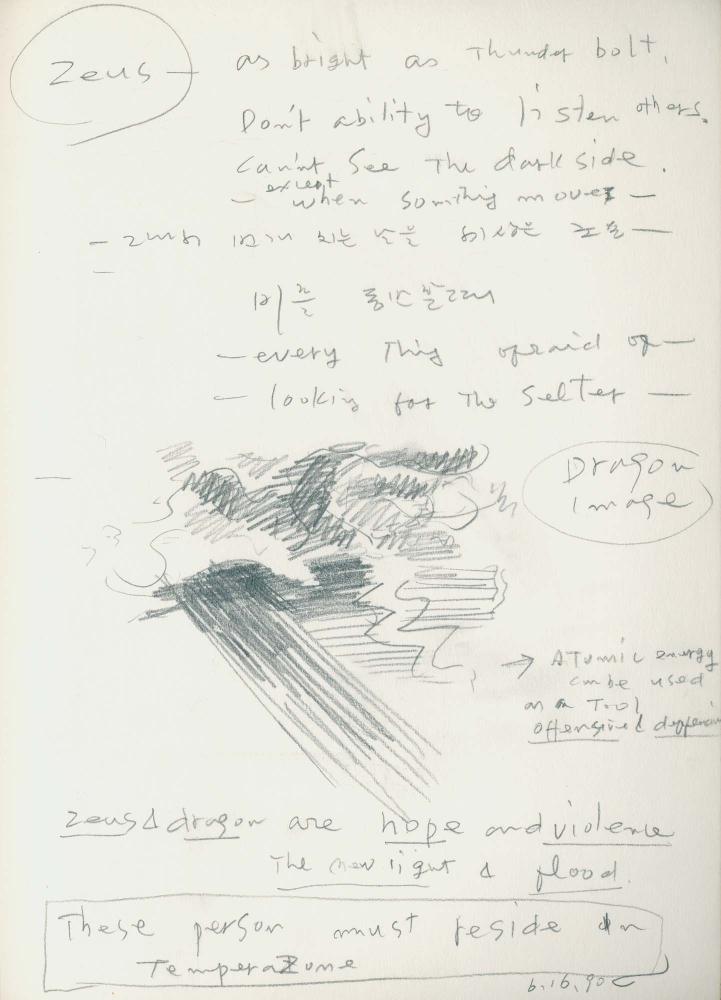 Zeus — as bright as Thunder bolt,
Don't ability to listen others.
Can'nt See The dark side.
except
— when somthing moves —
비를
— every Thing afraid of —
— looking for The Selter —
Dragon
Image
→ ATumic energy
can be used
as a Tool
offensive &
Zeus & dragon are hope and violence
The new light & flood.
These person must reside in
Tempera Zone
6.16.90